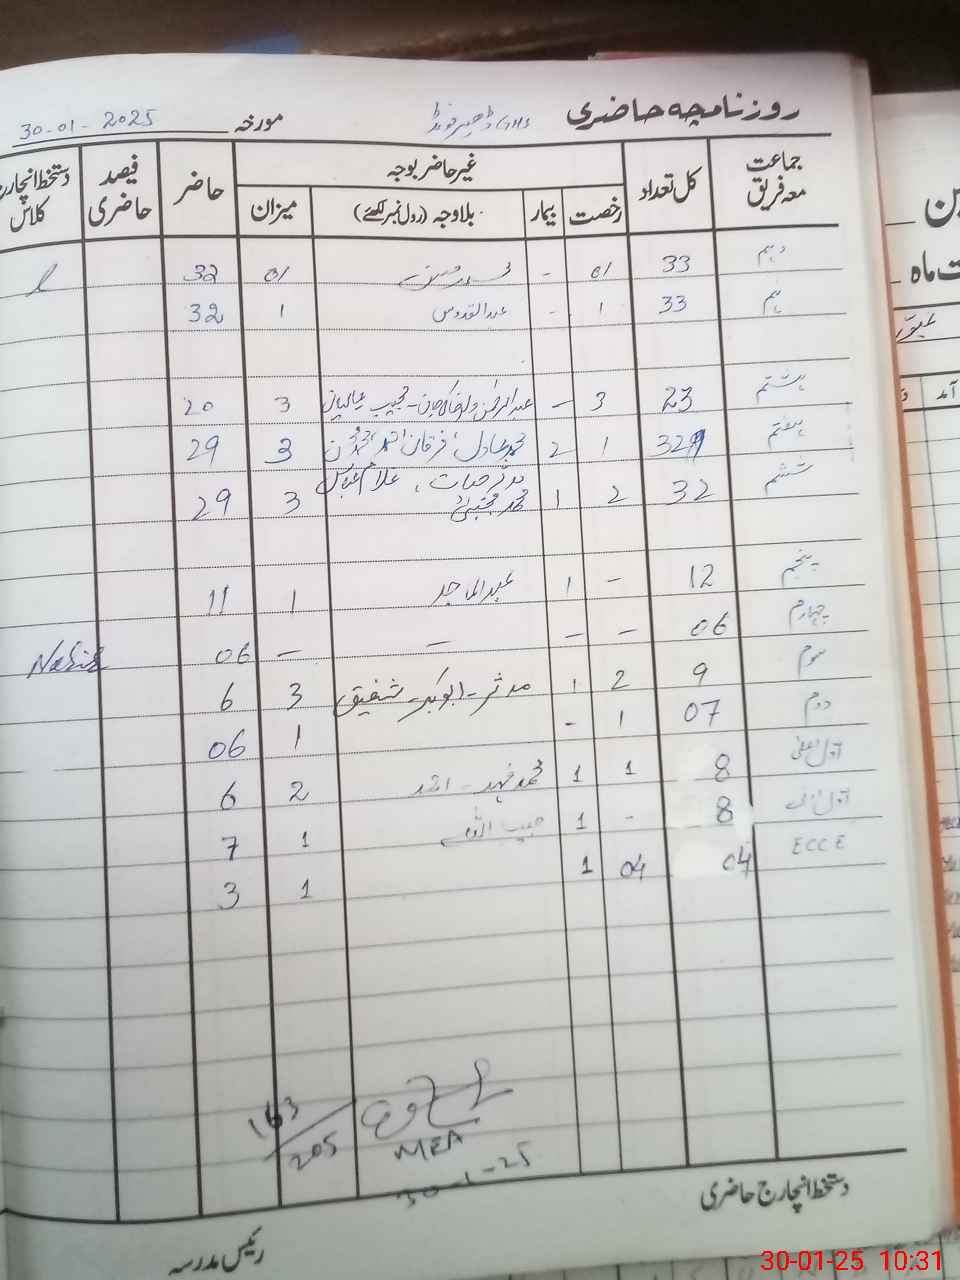 روزنامچہ حاضری GHS ڈھیر فونڈ مورخہ 30-01-2025
جماعت معہ فریق کل تعداد غیر حاضر بوجہ حاضر فیصد حاضری دستخط انچارج کلاس
رخصت بیمار بلاوجہ (رول نمبر لکھئے) میزان
دہم 33 01 - 01 32
نہم 33 1 - عبدالقدوس 1 32
ہشتم 23 3 - 3 20
ہفتم 32 1 2 محمد عادل، فرقان احمد، 3 29
ششم 32 2 1 مدثر حیات، غلام عباس محمد مجتبیٰ 3 29
پنجم 12 - 1 عبدالماجد 1 11
چہارم 06 - - - - 06
سوم 9 2 1 مدثر - ابوبکر - شفیق 3 6
دوم 07 1 - 1 06
اول اعلیٰ 8 1 1 محمد فہد - احمد 2 6
اول ادنیٰ 8 - 1 حبیب اللہ 1 7
ECCE 04 04 1 1 3
163/205
MEA
30-1-25
دستخط انچارج حاضری
رئیس مدرسہ
30-01-25 10:31